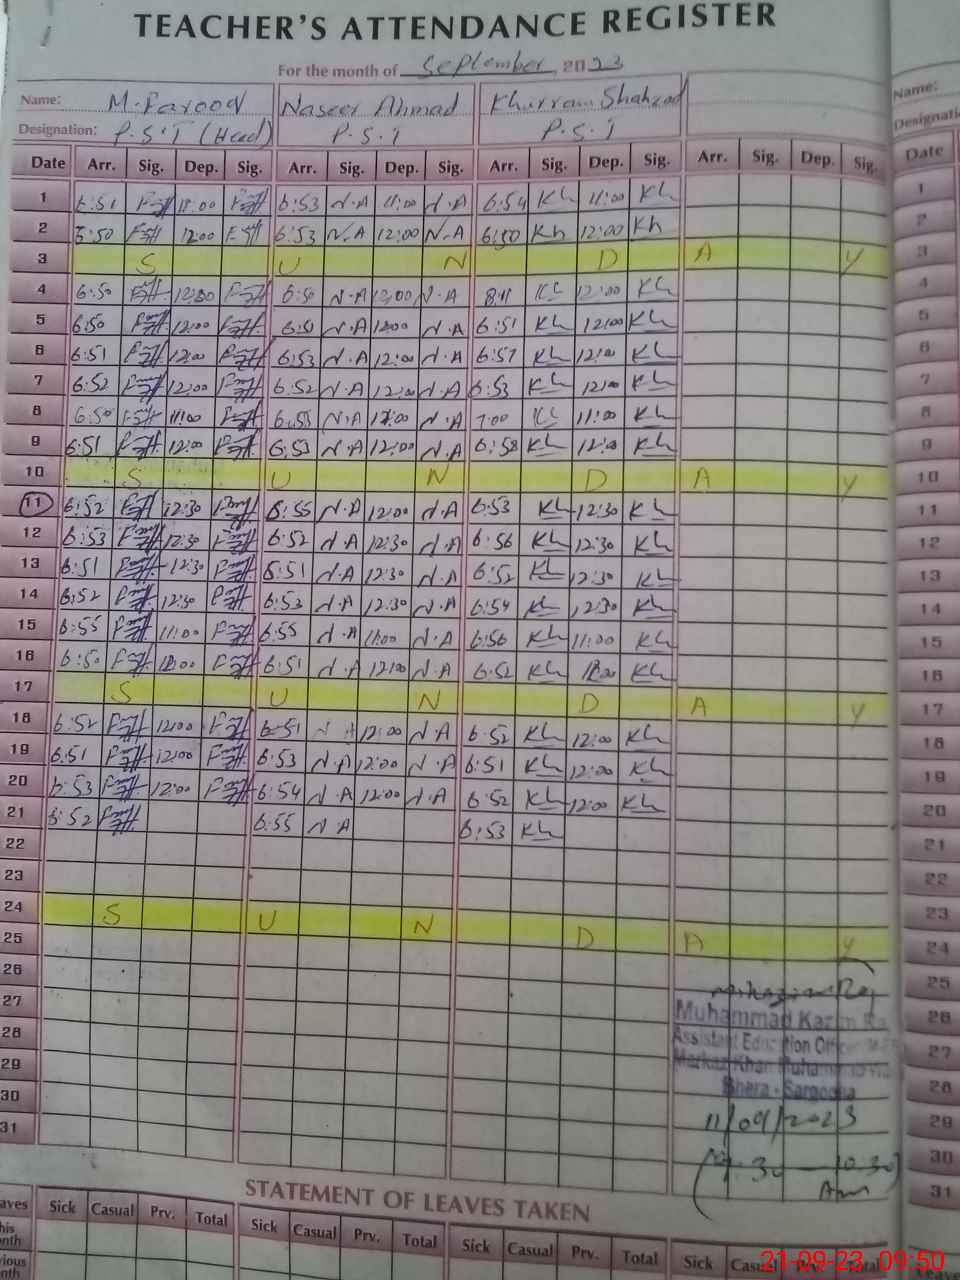 TEACHER'S ATTENDANCE REGISTER
For the month of September, 2023
Name: M. Farooq Naseer Ahmad Khurram Shahzad
Name:
Designation: P.S.T (Head) P.S.T P.S.T
Date Arr. Sig. Dep. Sig. Arr. Sig. Dep. Sig. Arr. Sig. Dep. Sig. Arr. Sig. Dep. Sig. Date
1 6:51 11:00 6:53 N.A 11:00 N.A 6:54 Kh 11:00 Kh 1
2 6:50 12:00 6:53 N.A 12:00 N.A 6:50 Kh 12:00 Kh 2
3 S U N D A Y 3
4 6:50 12:00 6:50 N.A 12:00 N.A 12:00 Kh 4
5 6:50 12:00 6:51 N.A 12:00 N.A 6:51 Kh 12:00 Kh 5
6 6:51 12:00 6:53 N.A 12:00 N.A 6:57 Kh 12:00 Kh 6
7 6:52 12:00 6:52 N.A 12:00 N.A 6:53 Kh 12:00 Kh 7
8 6:50 11:00 6:55 N.A N.A 7:00 11:00 Kh 8
9 6:51 12:00 6:53 N.A 12:00 N.A 6:58 Kh 12:00 Kh 9
10 S U N D A Y 10
11 6:52 12:30 6:55 N.A 12:00 N.A 6:53 Kh 12:30 Kh 11
12 6:53 12:30 6:52 N.A 12:30 N.A 6:56 Kh 12:30 Kh 12
13 6:51 12:30 6:51 N.A 12:30 N.A 6:52 Kh 12:30 Kh 13
14 6:52 12:30 6:53 N.A 12:30 N.A 6:54 Kh 12:30 Kh 14
15 6:55 11:00 6:55 N.A 11:00 N.A 6:56 Kh 11:00 Kh 15
16 6:50 12:00 6:51 N.A 12:00 N.A 6:52 Kh Kh 16
17 S U N D A Y 17
18 6:52 12:00 6:51 N A 12:00 N.A 6:52 Kh 12:00 Kh 18
19 6:51 12:00 6:53 N.A 12:00 N.A 6:51 Kh 12:00 Kh 19
20 6:53 12:00 6:54 N.A 12:00 N.A 6:52 Kh 12:00 Kh 20
21 6:52 6:55 N.A 6:53 Kh 21
22 22
23 23
24 S U N D A Y 24
25 25
26 26
27 27
28 28
29 29
30 30
31 31
Muhammad Kazim
Assistant Education Officer
Markaz Khan Muhammad
Bhera - Sargodha
11/09/2023
10:30)
Am
STATEMENT OF LEAVES TAKEN
Sick Casual Prv. Total Sick Casual Prv. Total Sick Casual Prv. Total Sick Casual Prv. Total
21-09-23 09:50